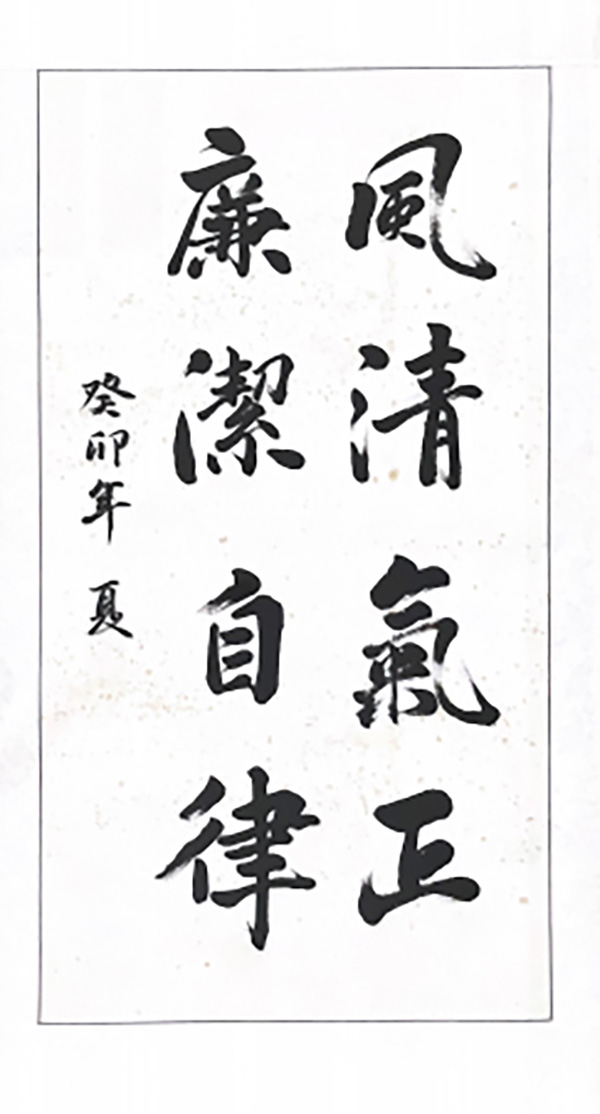 風清氣正
廉潔自律
癸卯年 夏